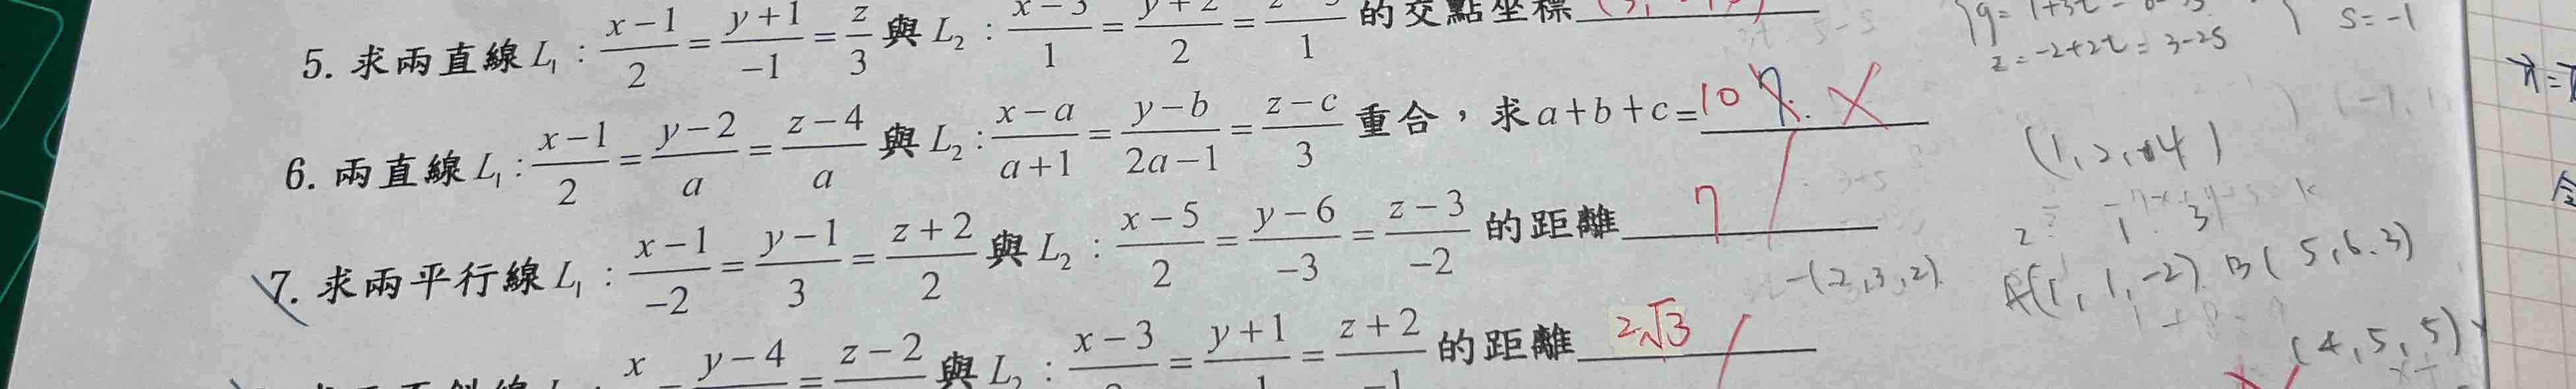 5. 求兩直線 L₁ : (x-1)/2 = (y+1)/-1 = z/3 與 L₂ : (x-3)/1 = (y+2)/2 = /1 的交點坐標
6. 兩直線 L₁ : (x-1)/2 = (y-2)/a = (z-4)/a 與 L₂ : (x-a)/(a+1) = (y-b)/(2a-1) = (z-c)/3 重合,求 a+b+c= 10
7. 求兩平行線 L₁ : (x-1)/-2 = (y-1)/3 = (z+2)/2 與 L₂ : (x-5)/2 = (y-6)/-3 = (z-3)/-2 的距離 7
x y-4 = z-2 與 L₂ : x-3 = (y+1)/1 = (z+2)/-1 的距離 2√3
z = -2+2t = 3-2s
s = -1
(1, 2, 4)
-(2, 3, 2)
A(1, 1, -2) B(5, 6, 3)
(4, 5, 5)